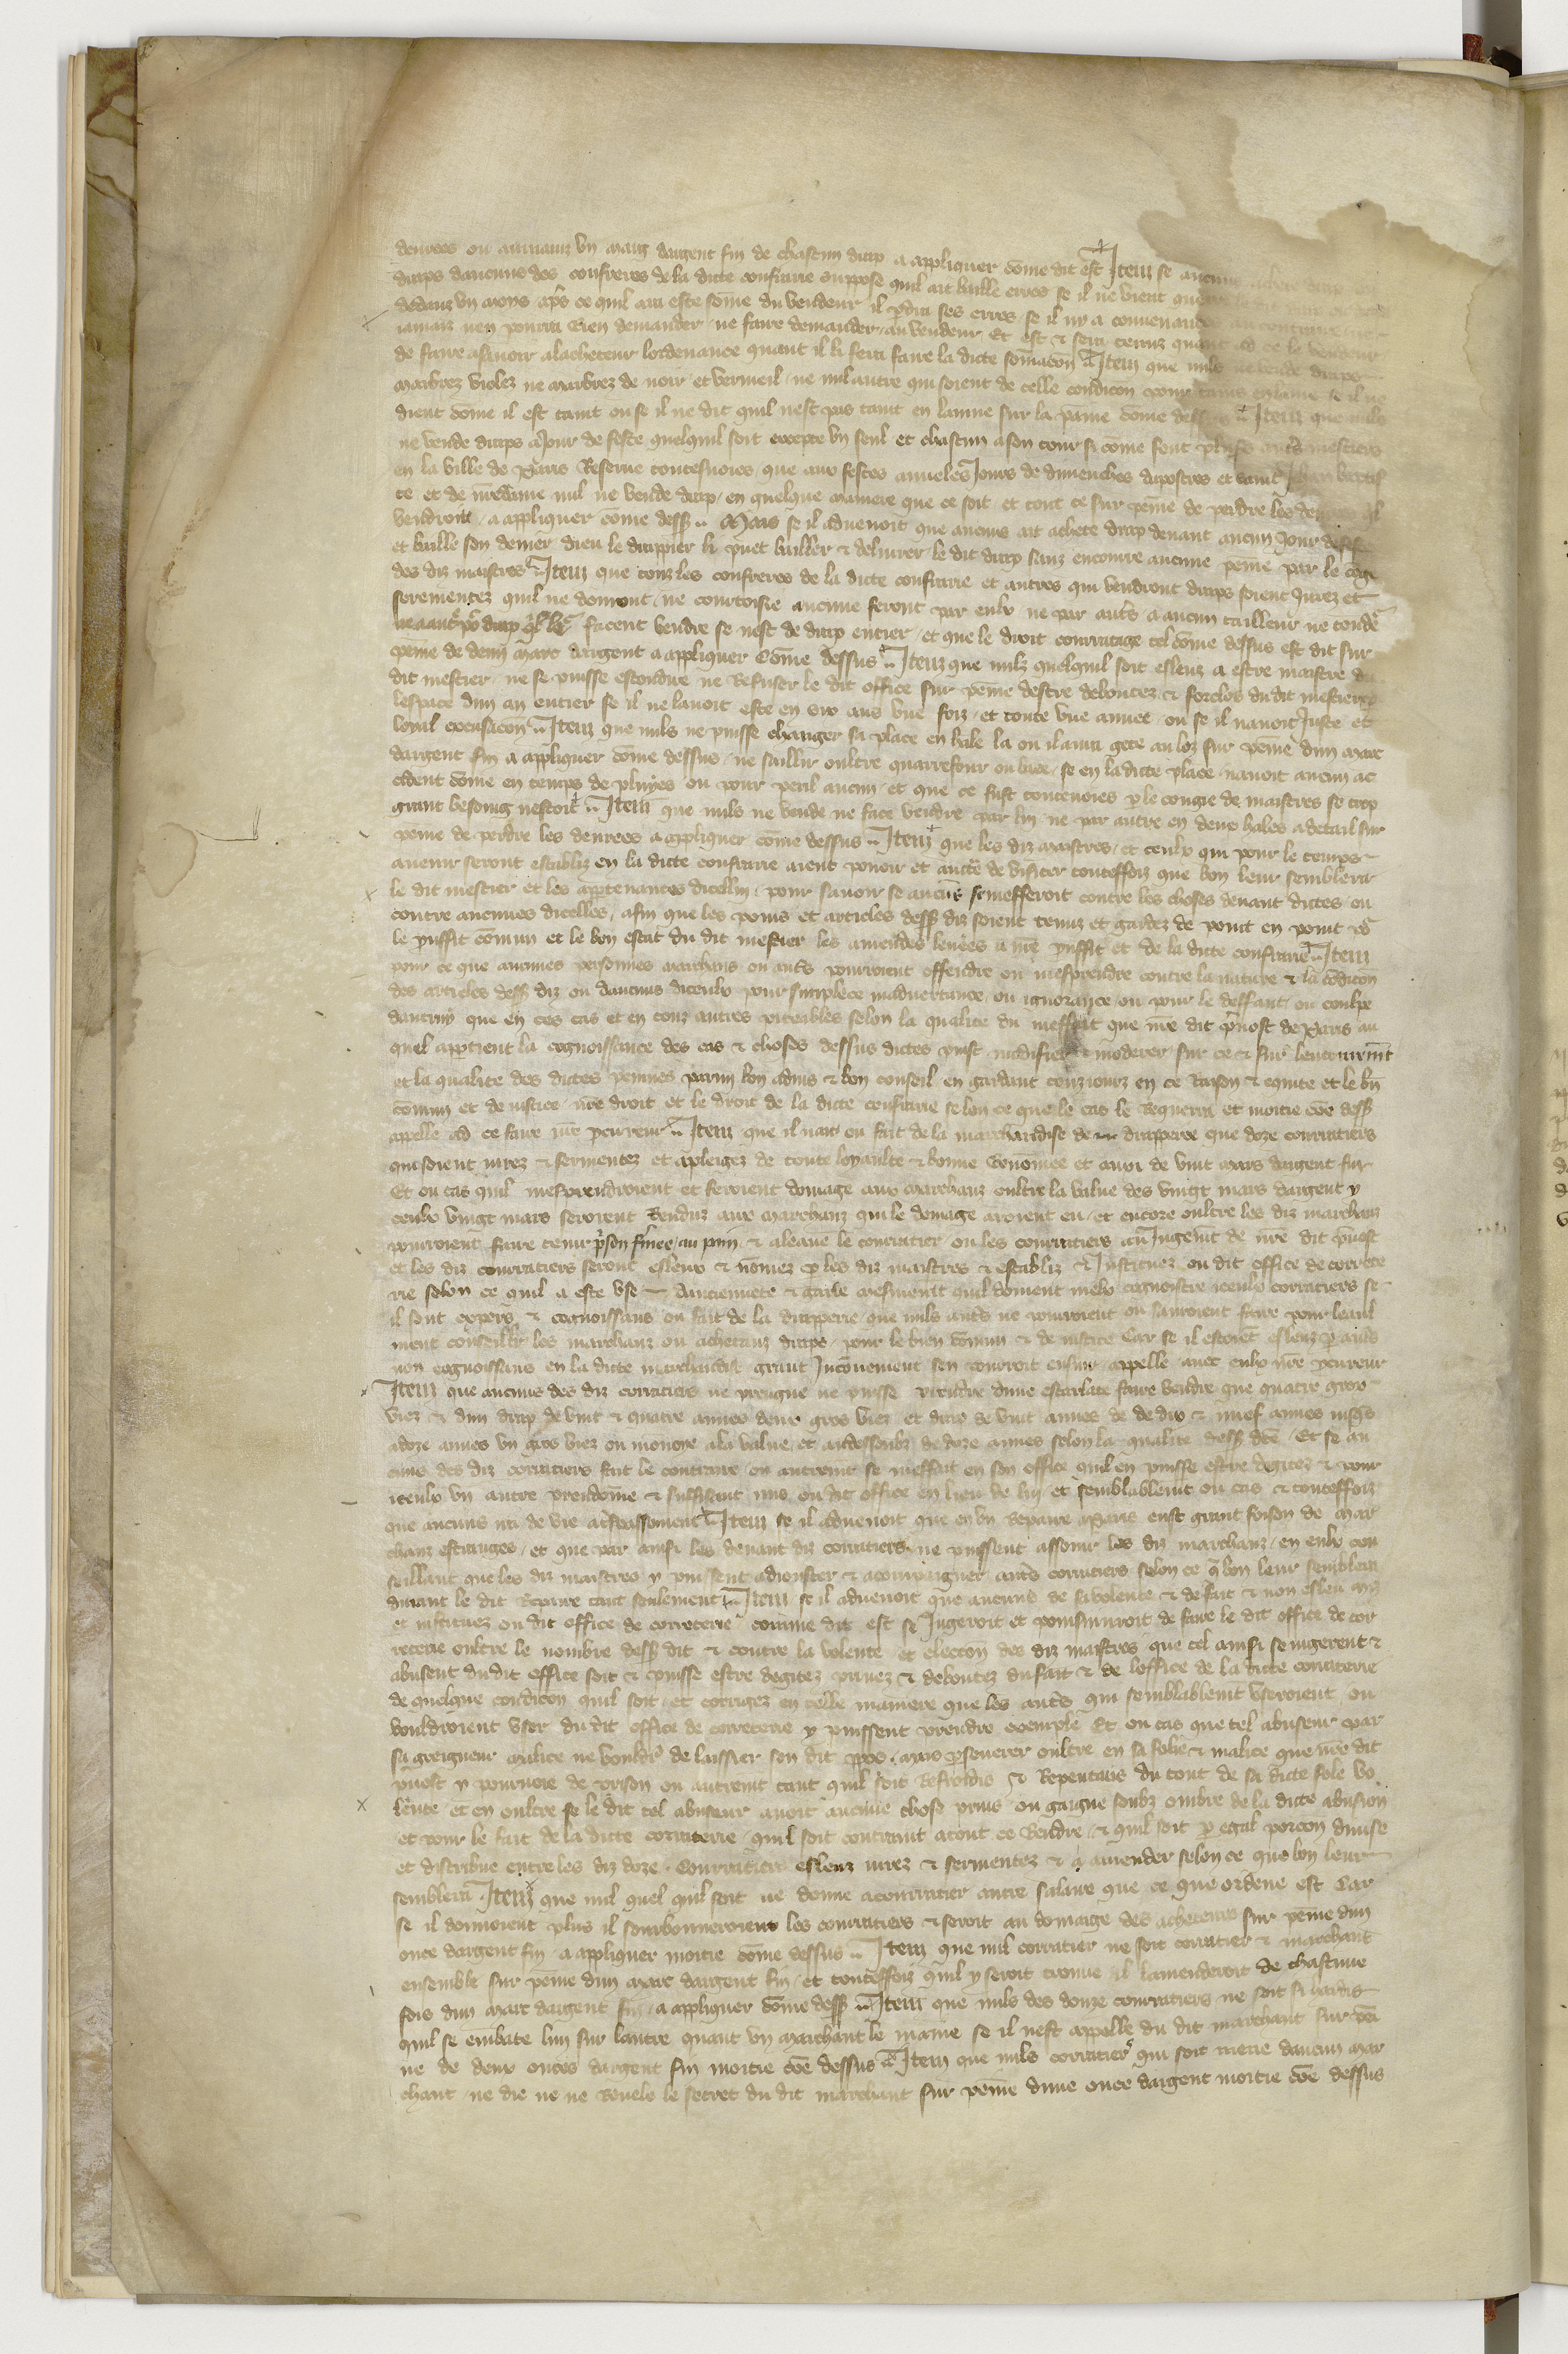 denrees ou auront un marc dargent fin de chascun drap a appliquer cōme dit est Item se aucuns achete drap
draps daucuns des confreres de la dicte confrarie suppose quil ait baille erres se il ne vient querre
dedanz un moys apres ce quil aura este sōme du vendeur il pdra ses erres se il ny a convenances au contraire
iamais rien pourra rien demander ne faire demander au vendeur Et est & sera tenuz quant ad ce le vendeur
de faire asavoir alacheteur lordenance quant il li fera faire la dicte somacōn Item que nulz ne vende draps
marbrez violez ne marbrez de noir et vermeil ne nul autre qui soient de celle condicōn pour tains en laine se il ne
dient cōme il est taint ou se il ne dit quil nest pas taint en laine sur la paine cōme dessus Item que nulz
ne vende draps a Jour de feste quelquil soit excepte un seul et chascun a son tour si cōme font plusrs autrs mestiers
en la ville de Paris Reserve toutesvoies que aux festes anueles Jours de dimenches dapostres et saint Jehan baptis
te et de nredame nul ne vende drap en quelque maniere que ce soit et tout ce sur peine de perdre les denrees ql
vendroit a appliquer cōme dess Mais se il advenoit que aucuns ait achete drap devant aucun Jour de feste
et baille son denier dieu le drappier li puet bailler & delivrer le dit drap sanz encourre aucune peine par le cōge
des diz maistres Item que touz les confreres de la dicte confrarie et autres qui vendront draps soient Jurez et
serementez quil ne donront ne courtoisie aucune feront par eulx ne par autrs a aucun tailleur ne tondr
ne a autr po drap ql le facent vendre se nest de drap entier et que le droit courratage tel cōme dessus est dit sur
peine de demi marc dargent a appliquer Cōme dessus Item que nulz quelquil soit esleuz a estre maistre du
dit mestier ne se puisse escondire ne Refuser le dit office sur peine destre deboutez & forclos du dit mestier p
lespace dun an entier se il ne lavoit este en six ans une foiz et toute une annee ou se il navoit Juste et
loyal excusacōn Item que nulz ne puisse changer sa place en hale la ou il aura gete au loz sur peine dun marc
dargent fin a appliquer cōme dessus ne saillir oultre quarrefour ou huve se en la dicte place navoit aucun ac
cident cōme en temps de pluyes ou pour peril aucun et que ce fust toutevoies p le congie de maistres se trop
grant besoing nestoit Item que nulz ne vende ne face vendre par lui ne par autre en deux hales a detail sur
peine de perdre les denrees a appliquer cōme dessus Item que les diz maistres et ceulx qui pour le temps
avenir seront establiz en la dicte confrarie aient pouoir et aucte de visiter touteffoiz que bon leur semblera
le dit mestier et les apptenances dicellui pour savoir se aucuns se mefferoit contre les choses devant dictes ou
contre aucunes dicelles afin que les poins et articles dess diz soient tenuz et gardez de point en point po
le puffit cōmun et le bon estat du dit mestier les amendes levees a nre puffit et de la dicte confrarie Item
pour ce que aucunes personnes marchans ou autrs pourroient offendre ou mesprendre contre la nature & la cōdicōn
des articles dess diz ou daucuns diceulx pour simplece inadvertance ou ignorance ou pour le deffaut ou coulpe
dautruy que en ces cas et en touz autres piteables selon la qualite du meffait que nre dit pvost de Paris au
quel apptient la cognoissance des cas & choses dessus dictes puist modifier & moderer sur ce & sur
et la qualite des dictes peines parmi bon advis & bon conseil en gardant touziourz en ce Raison & equite et le bn
cōmun et de iustice nre droit et le droit de la dicte confrarie selon ce que le cas le Requerra et moitie cōe dess
appelle ad ce faire nre pcureur Item que il nait ou fait de la marchandise de drapperie que doze courratiers
qui soient iurez & sermentez et apleigez de toute loyaulte & bonne Renōmee et avoir de vint mars dargent fin
Et ou cas quil mesprendroient et feroient domage aux marchanz oultre la value des vingt mars dargent p
ceulx vingt mars seroient Renduz aux marchanz qui le domage avoient eu et encore oultre les diz marchanz
pourroient faire tenir prison fermee au pain & a leaue le courratier ou les courratiers au Jugemt de nre dit pvost
et les diz courratiers seront esleux & nōmez p les diz maistres & establiz & Instituez ou dit office de correte
rie selon ce quil a este use Anciennete & garde mesmemt quil doivent mielx cognoistre iceulx corratiers se
il sont expers & cognoissans ou fait de la drapperie que nulz autrs ne pourroient ou sauroient faire pour leaul
ment conseillir les marchanz ou achetanz draps pour le bien cōmun & de iustice Car se il estoiēt esleuz p autrs
non cognoissans en la dicte marchandise grant Inconvenient sen pourroit ensuir appelle avec eulx nre pcureur
Item que aucuns des diz corratiers ne preigne ne puisse prendre dune escarlate faire vendre que quatre gros
viez & dun drap de vint & quatre aunes deux gros viez et drap de vint aunes de de dix & nuef aunes iusqs
a doze aunes un gros viez ou monoie a la value et audessoubz de doze aunes selon la qualite dess dce Et se au
cuns des diz corratiers fait le contraire ou autremt se meffait en son office quil en puisse estre degitez & pour
iceulx un autre preudōme & suffisant mis ou dit office en lieu de lui et semblablemt ou cas & touteffoiz
que aucuns ira de vie a trespassement Item se il advenoit que en un Repaire a Paris eust grant foison de mar
chanz estranges et que par ainsi les devant diz corratiers ne puissent assouvir les diz marchanz en eulx con
seillant que les diz maistres y puissent adiouster & acompaigner autrs corratiers selon ce q bon leur semblera
durant le dit Repaire tant seulement Item se il advenoit que aucuns de sa volente & de fait & non esleu
et instituez ou dit office de correterie cōmme dit est se Jngeroit et poursuivroit de faire le dit office de cor
reterie oultre le nombre dess dit & contre la volente et election des diz maistres que tel ainsi se ingerent &
abusent du dit office soit & puisse estre degitez privez & deboutez du fait & de loffice de la dicte corraterie
de quelque condicōn quil soit et corrigez en telle maniere que les autrs qui semblablemt useroient ou
vouldroient user du dit office de correterie y puissent prendre exemple Et ou cas que tel abuseur par
sa greigneur malice ne vouldr de laissier son dit ppos mais psevere oultre en sa folie & malice que nre dit
pvost y pourvoie de prison ou autremt tant quil soit Refroidis & Repentans du tout de sa dicte fole vo
lente et en oultre se le dit tel abuseur avoit aucune chose prins ou gaigne soubz ombre de la dicte abusion
et pour le fait de la dicte corraterie quil soit contraint a tout ce Rendre & quil soit p egal porcōn divise
et distribue entre les diz doze Courratiers esleuz iurez & sermentez & a amender selon ce que bon leur
semblera Item que nul quel quil soit ne donne a courratier autre salaire que ce que ordene est Car
se il donnoient plus il sourbonneroient les courratiers & seroit au domaige des acheteurs sur peine dun
once dargent fin a appliquer moitie cōme dessus Item que nul corratier ne soit corratier & marchant
ensemble sur peine dun marc dargent fin et touteffoiz quil y seroit trouve il lamenderoit de chascune
fois dun marc dargent fin a appliquer cōme dess Item que nulz des douze courratiers ne soit si hardis
quil se embate lun sur lautre quant un marchant le maine se il nest appelle du dit marchant sur pei
ne de deux onces dargent fin moitie cōe dessus Item que nulz corratier qui soit mene daucun mar
chant ne die ne ne Revele le secret du dit marchant sur peine dune once dargent moitie cōe dessus